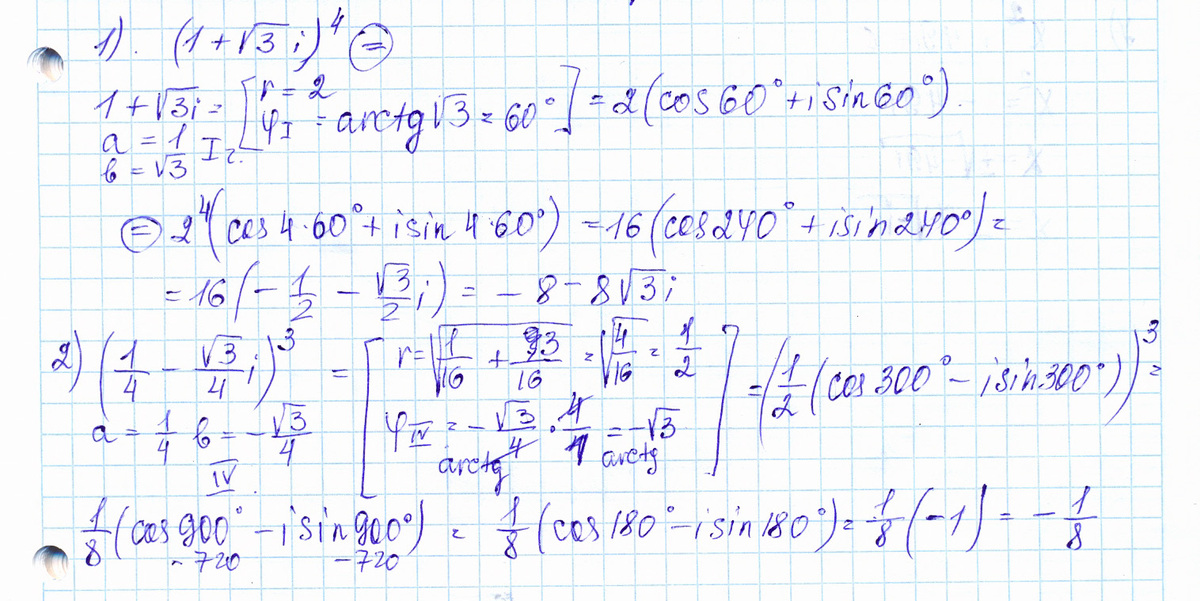 1). (1+√3 i)⁴ ⊜
1+√3i = [r = 2
φ_I = arctg √3 = 60°] = 2(cos60°+isin60°).
a = 1
в = √3 I г.
⊜ 2⁴(cos 4·60°+isin 4·60°) = 16(cos240°+isin240°) =
= 16(-1/2 - √3/2 i) = -8-8√3i
2) (1/4 - √3/4 i)³ = [r = √(1/16 + 3/16) = √(4/16) = 1/2
φ_IV = arctg -√3/4 · 4/1 = arctg -√3] = (1/2(cos300°-isin300°))³ =
a = 1/4 в = -√3/4
IV.
1/8(cos900°-isin900°) = 1/8(cos180°-isin180°) = 1/8(-1) = -1/8
-720 -720